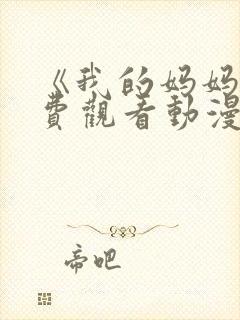 《我的妈妈
费觀看動漫
帝吧